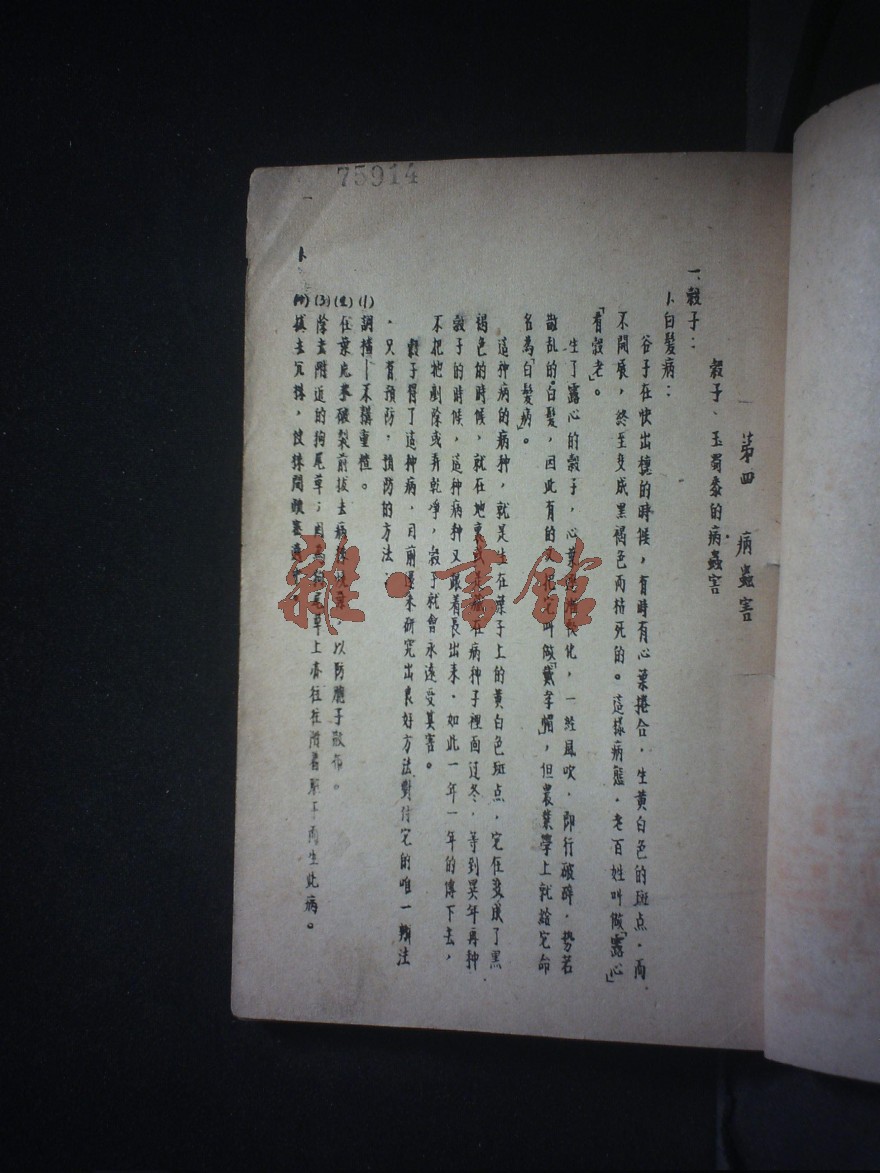 75914
第四 病蟲害
穀子、玉蜀黍的病蟲害
一、穀子：
1、白髮病：
谷子在快出穗的時候，有時有心葉捲合，生黃白色的斑点，而
不開展，終至变成黑褐色而枯死的。這樣病態，老百姓叫做「露心」
「看穀老」。
生了露心的穀子，心葉逐漸 化，一經風吹，即行破碎，势若
散乱的白髮，因此有的又把它叫做「戴孝帽」，但農業學上就給它命
名為「白髮病」。
這种病的病种，就是生在穗子上的黃白色斑点，它在变成了黑
褐色的時候，就在地裏或是 在病种子裡面过冬，等到翌年再种
穀子的時候，這种病种又跟着長出来，如此一年一年的傳下去，
不把牠剷除或弄乾淨，穀子就會永远受其害。
穀子得了這种病，目前還未研究出良好方法，對付它的唯一辦法
，只有預防，預防的方法：
(1)調楂—不種重楂。
(2)在葉尖拳破裂前拔去病株燒 ，以防胞子散布。
(3)除去附近的狗尾草；因為狗尾草上亦往往附着 子而生此病。
(4)拔去冗株，使株間 。
雜·書館